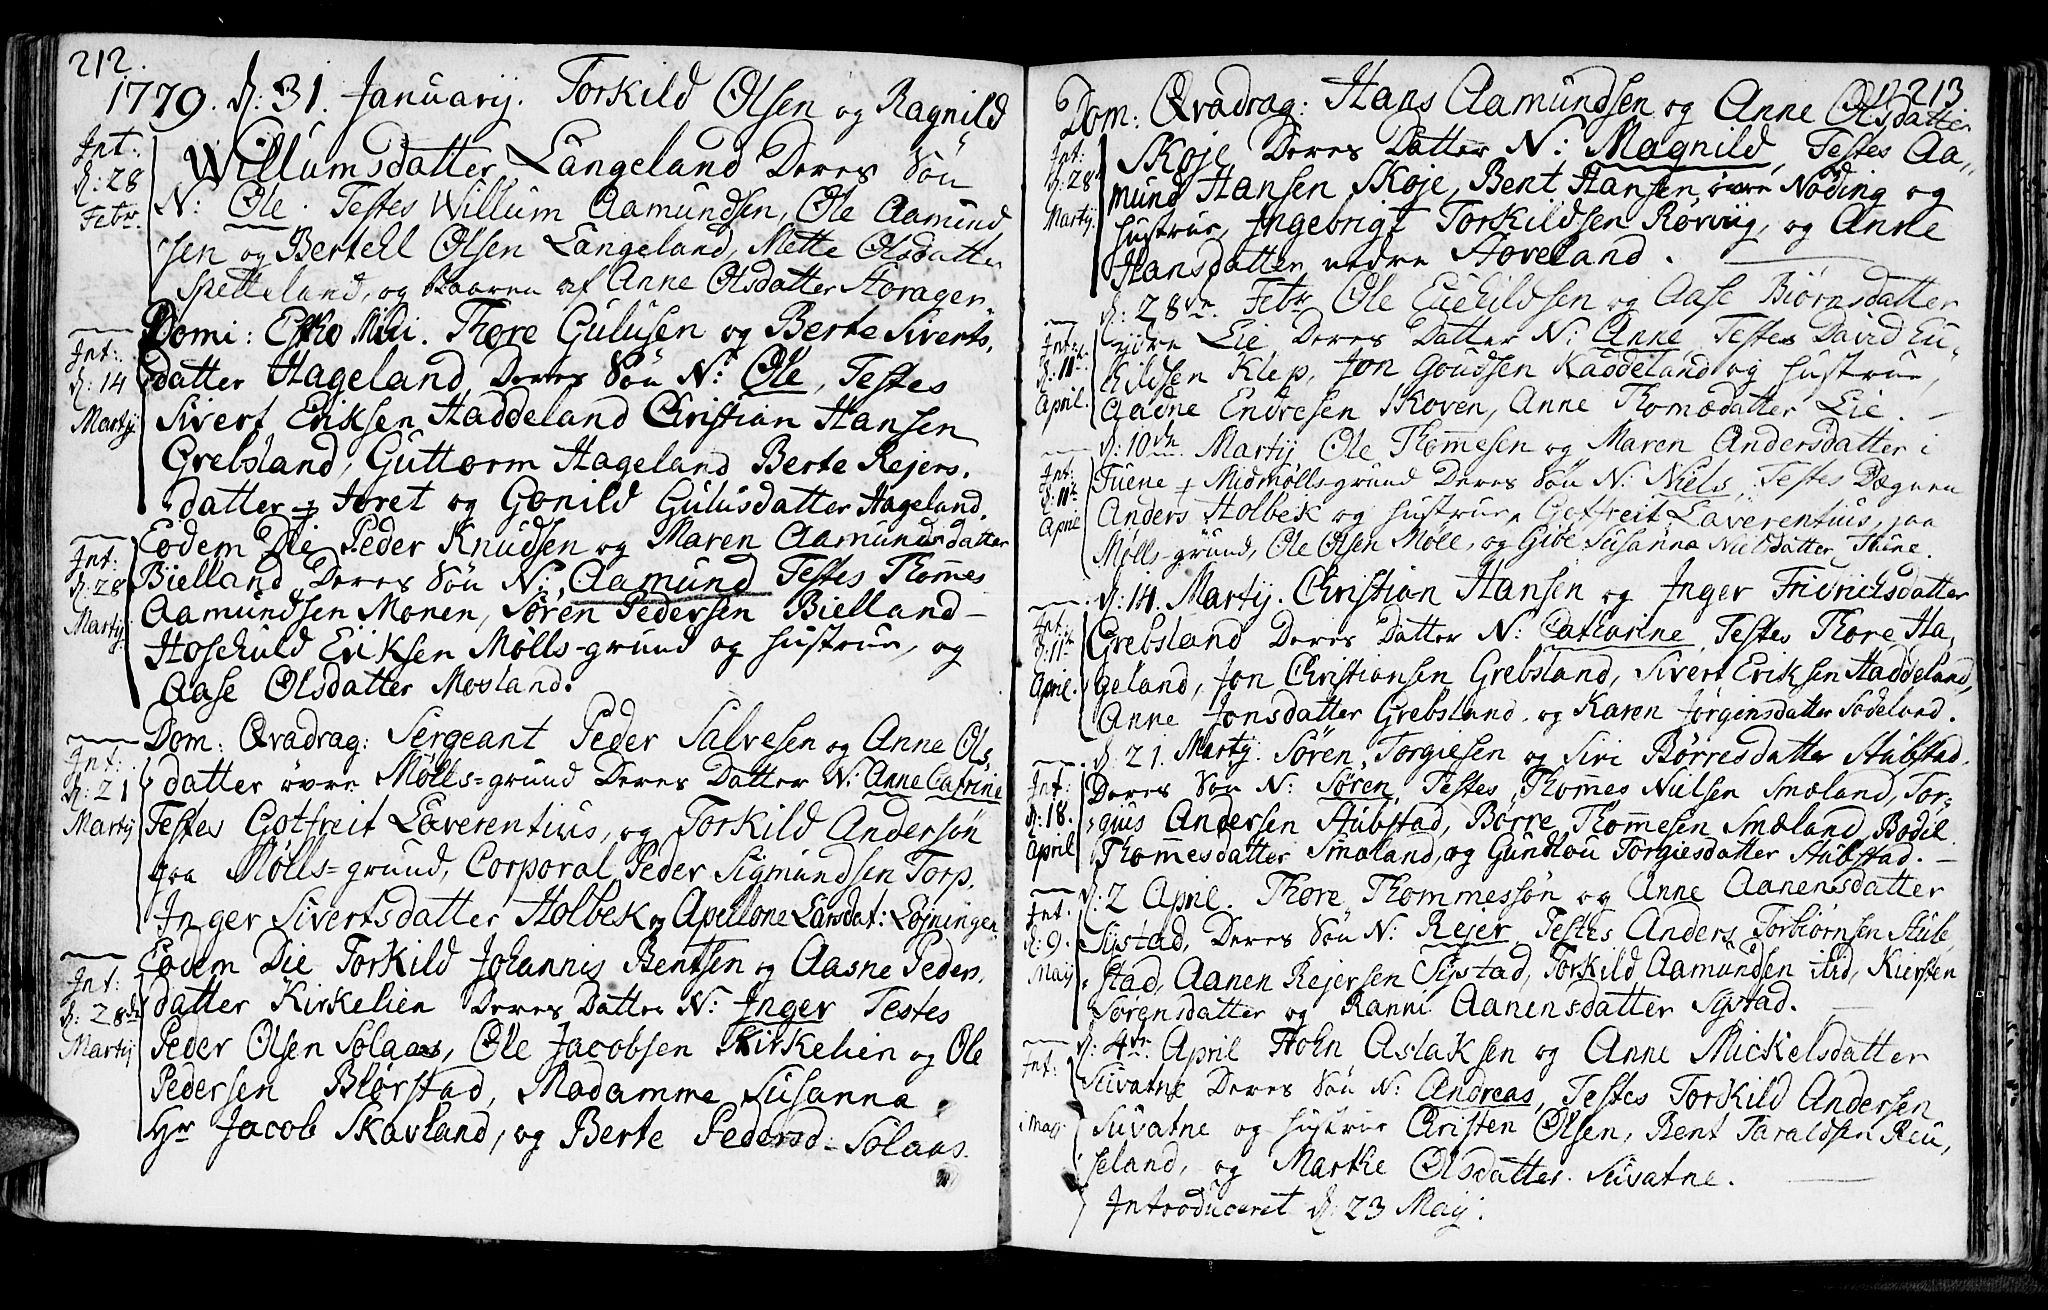 212.
1779. d: 31. Januarij. Torkild Olsen og Ragnild
Int:
d: 28
Febr.
Willumsdatter Langeland Deres Søn
N: Ole. Testes Willum Aamundsen, Ole Aamund
sen og Bertell Olsen Langeland, Mette Olsdatter
Spetteland, og baaren af Anne Olsdatter Horager
Domi: Esto Mihi. Thore Gulusen og Berte Siverts,
Int:
d: 14
Martij
datter Hageland Deres Søn N: Ole, Testes
Sivert Eriksen Haddeland Christian Hansen
Grebsland, Guttorm Hageland Berte Rejers,
datter Joret og Gonild Gulusdatter Hageland.
Eodem Die Peder Knudsen og Maren Aamundsdatter
Int:
d: 28
Martij
Bielland Deres Søn N: Aamund Testes Thomes
Aamundsen Monen, Søren Pedersen Bielland
Hoschuld Eriksen Mølls-grund og hustrue, og
Aase Olsdatter Mosland.
Dom: Qvadrag: Sergeant Peder Salvesen og Anne Ols,
Int:
d: 21
Martij
datter øvre Mølls=grund Deres Datter N: Anne Catrine
Testes Gotfreit Laverentius, og Torkild Andersøn
paa Mølls=grund, Corporal Peder Sigmundsen Torp,
Inger Sivertsdatter Holbek og Apellone Larsdat: Løjningen
Eodem Die Torkild Johannis Bentsen og Aasne Peders,
Int:
d: 28de
Martij
datter Kirkelien Deres Datter N: Inger Testes
Peder Olsen Solaas, Ole Jacobsen Kirkelien og Ole
Pedersen Blørstad, Madamme Susanna
Hr Jacob Skavland, og Berte Pedersd- Solaas.
213.
Dom: Qvadrag: Hans Aamundsen og Anne Olsdatter
Int:
d: 28
Martij
Skoje Deres Datter N: Magnild, Testes Aa,,
mund Hansen Skoje, Bent Hansen øvre Nøding og
hustrue, Ingebrigt Torkildsen Rørvig, og Anne
Hansdatter nedre Hoveland.
d: 28de Febr Ole Euchildsen og Aase Biørnsdatter
Int:
d: 11te
April.
ydre Lie Deres Datter N: Anne Testes David Eu,
kildsen Klep, Jon Goudsen Kaddeland og hustrue,
Aadne Endresen Skoven, Anne Thomædatter Lie. -
d: 10de Martij Ole Thomesen og Maren Andersdatter i
Int:
d: 11te
April
Tuene Midmøllsgrund Deres Søn N: Niels, Testes Degnen
Anders Holbek og hustrue, Gotfreit Laverentius, paa
Mølls-grund, Ole Olsen Møll, og Gibe Susanna Nielsdatter Thune.
d: 14. Martij. Christian Hansen og Inger Fridrichsdatter
Int:
d: 11te
April.
Grebsland Deres Datter N: Catharine, Testes Thore Ha,
geland, Jon Christiansen Grebsland, Sivert Eriksen Haddeland,
Anne Jonsdatter Grebsland, og Karen Jørgensdatter Sødeland.
d: 21. Martij. Søren Torgiesen og Siri Børresdatter Stubstad.
Int:
d: 18.
April
Deres Søn N: Søren, Testes Thomes Nielsen Smæland, Tor=
gius Andersen Stubstad, Børre Thomesen Smæland, Bodil
Thomesdatter Smæland, og Gundlou Torgiesdatter Stubstad. -
d: 2 April. Thore Thommessøn og Anne Aanensdatter
Int:
d: 9.
Maij
Sustad, Deres Søn N: Rejer Testes Anders Torbiørnsen Stub,
stad, Aanen Rejersen Systad, Torkild Aamundsen ibid, Kiersten
Sørensdatter og Ranni Aanensdatter Systad.
d: 4de April John Aslaksen og Anne Mickelsdatter
Int:
1 Maij.
Suvatne Deres Søn N: Andreas, Testes Torkild Andersen
Suvatne og hustrue Cristen Olsen, Bent Taraldsen Reu,
seland, og Marthe Olsdatter Suvatne.
Introduceret d: 23 Maij.